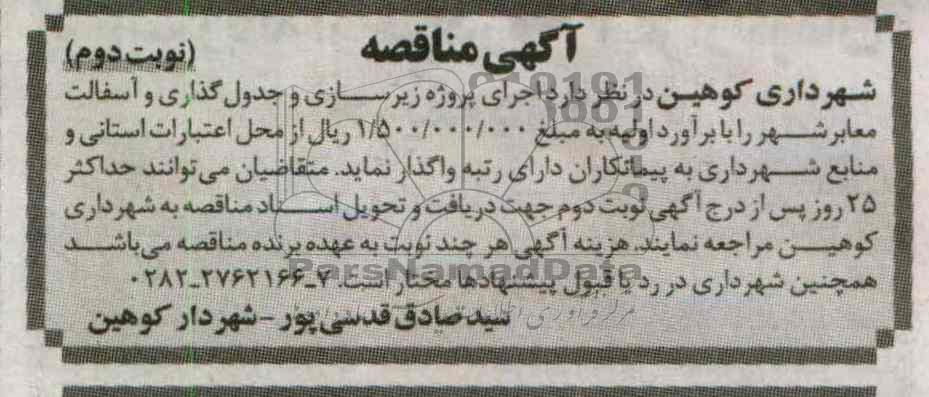 آگهی مناقصه
(نوبت دوم)
شهرداری کوهین در نظر دارد اجرای پروژه زیرسازی و جدول گذاری و آسفالت
معابر شهر را با برآورد اولیه به مبلغ ۱/۵۰۰/۰۰۰/۰۰۰ ریال از محل اعتبارات استانی و
منابع شهرداری به پیمانکاران دارای رتبه واگذار نماید. متقاضیان می‌توانند حداکثر
۲۵ روز پس از درج آگهی نوبت دوم جهت دریافت و تحویل اسناد مناقصه به شهرداری
کوهین مراجعه نمایند. هزینه آگهی هر چند نوبت به عهده برنده مناقصه می‌باشد
همچنین شهرداری در رد یا قبول پیشنهادها مختار است. ۷-۲۷۶۲۱۶۶-۰۲۸۲
سید صادق قدسی‌پور - شهردار کوهین
ParsNamadData